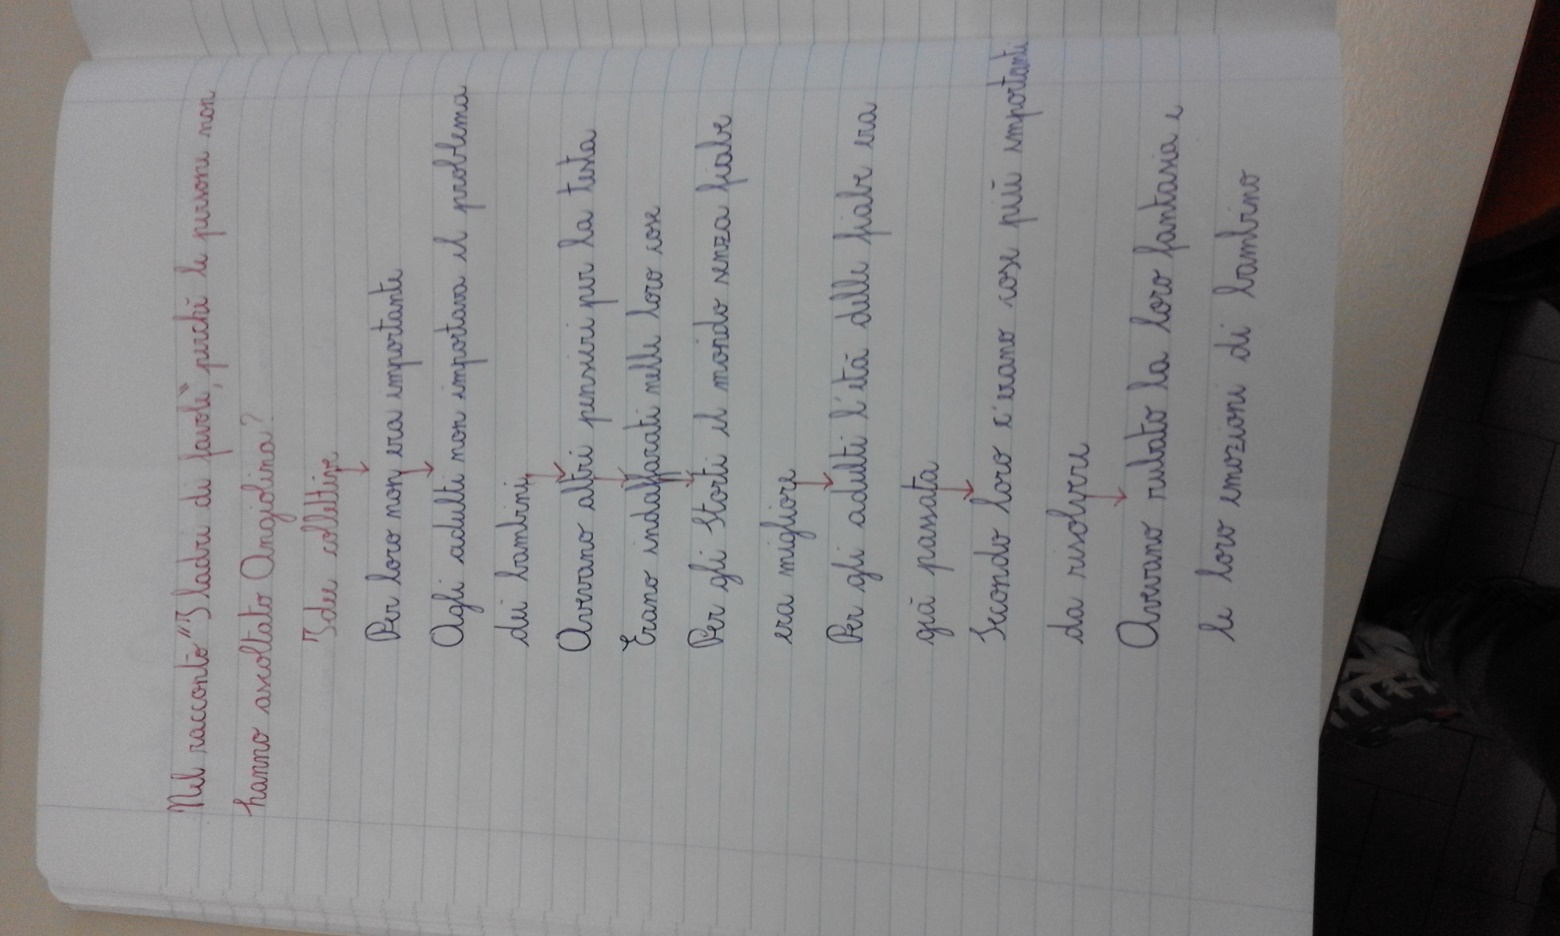 Nel racconto "I ladri di favole", perchè le persone non
hanno ascoltato Angiolina?
Idee collettive
Per loro non era importante
Agli adulti non importava il problema
dei bambini
Avevano altri pensieri per la testa
Erano indaffarati nelle loro cose
Per gli Storti il mondo senza fiabe
era migliore
Per gli adulti l'età delle fiabe era
già passata
Secondo loro c'erano cose più importanti
da risolvere
Avevano rubato la loro fantasia e
le loro emozioni di bambino